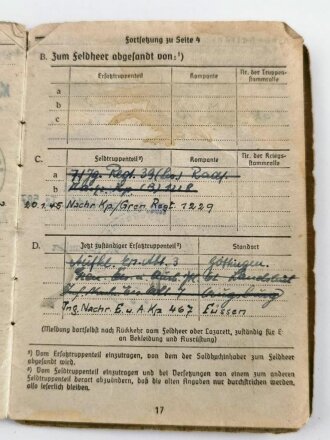 Fortsetzung zu Seite 4
B. Zum Feldheer abgesandt von:¹)
Ersatztruppenteil Kompanie Nr. der Truppenstammrolle
a
b
c
C. Feldtruppenteil²) Kompanie Nr. der Kriegsstammrolle
a Regt. 39
b
c 20.1.45 Nachr. Kp/Gren. Regt 1229
D. Jetzt zuständiger Ersatztruppenteil²) Standort
Abt. 3 Göttingen
Augsburg
Nachr. E. u. A. Kp 467 Füssen
(Meldung dortselbst nach Rückkehr vom Feldheer oder Lazarett, zuständig für Ersatz
an Bekleidung und Ausrüstung)
¹) Vom Ersatztruppenteil einzutragen, von dem der Soldbuchinhaber zum Feldheer
abgesandt wird.
²) Vom Feldtruppenteil einzutragen und bei Versetzungen von einem zum anderen
Feldtruppenteil derart abzuändern, daß die alten Angaben nur durchstrichen werden,
also leserlich bleiben.
17